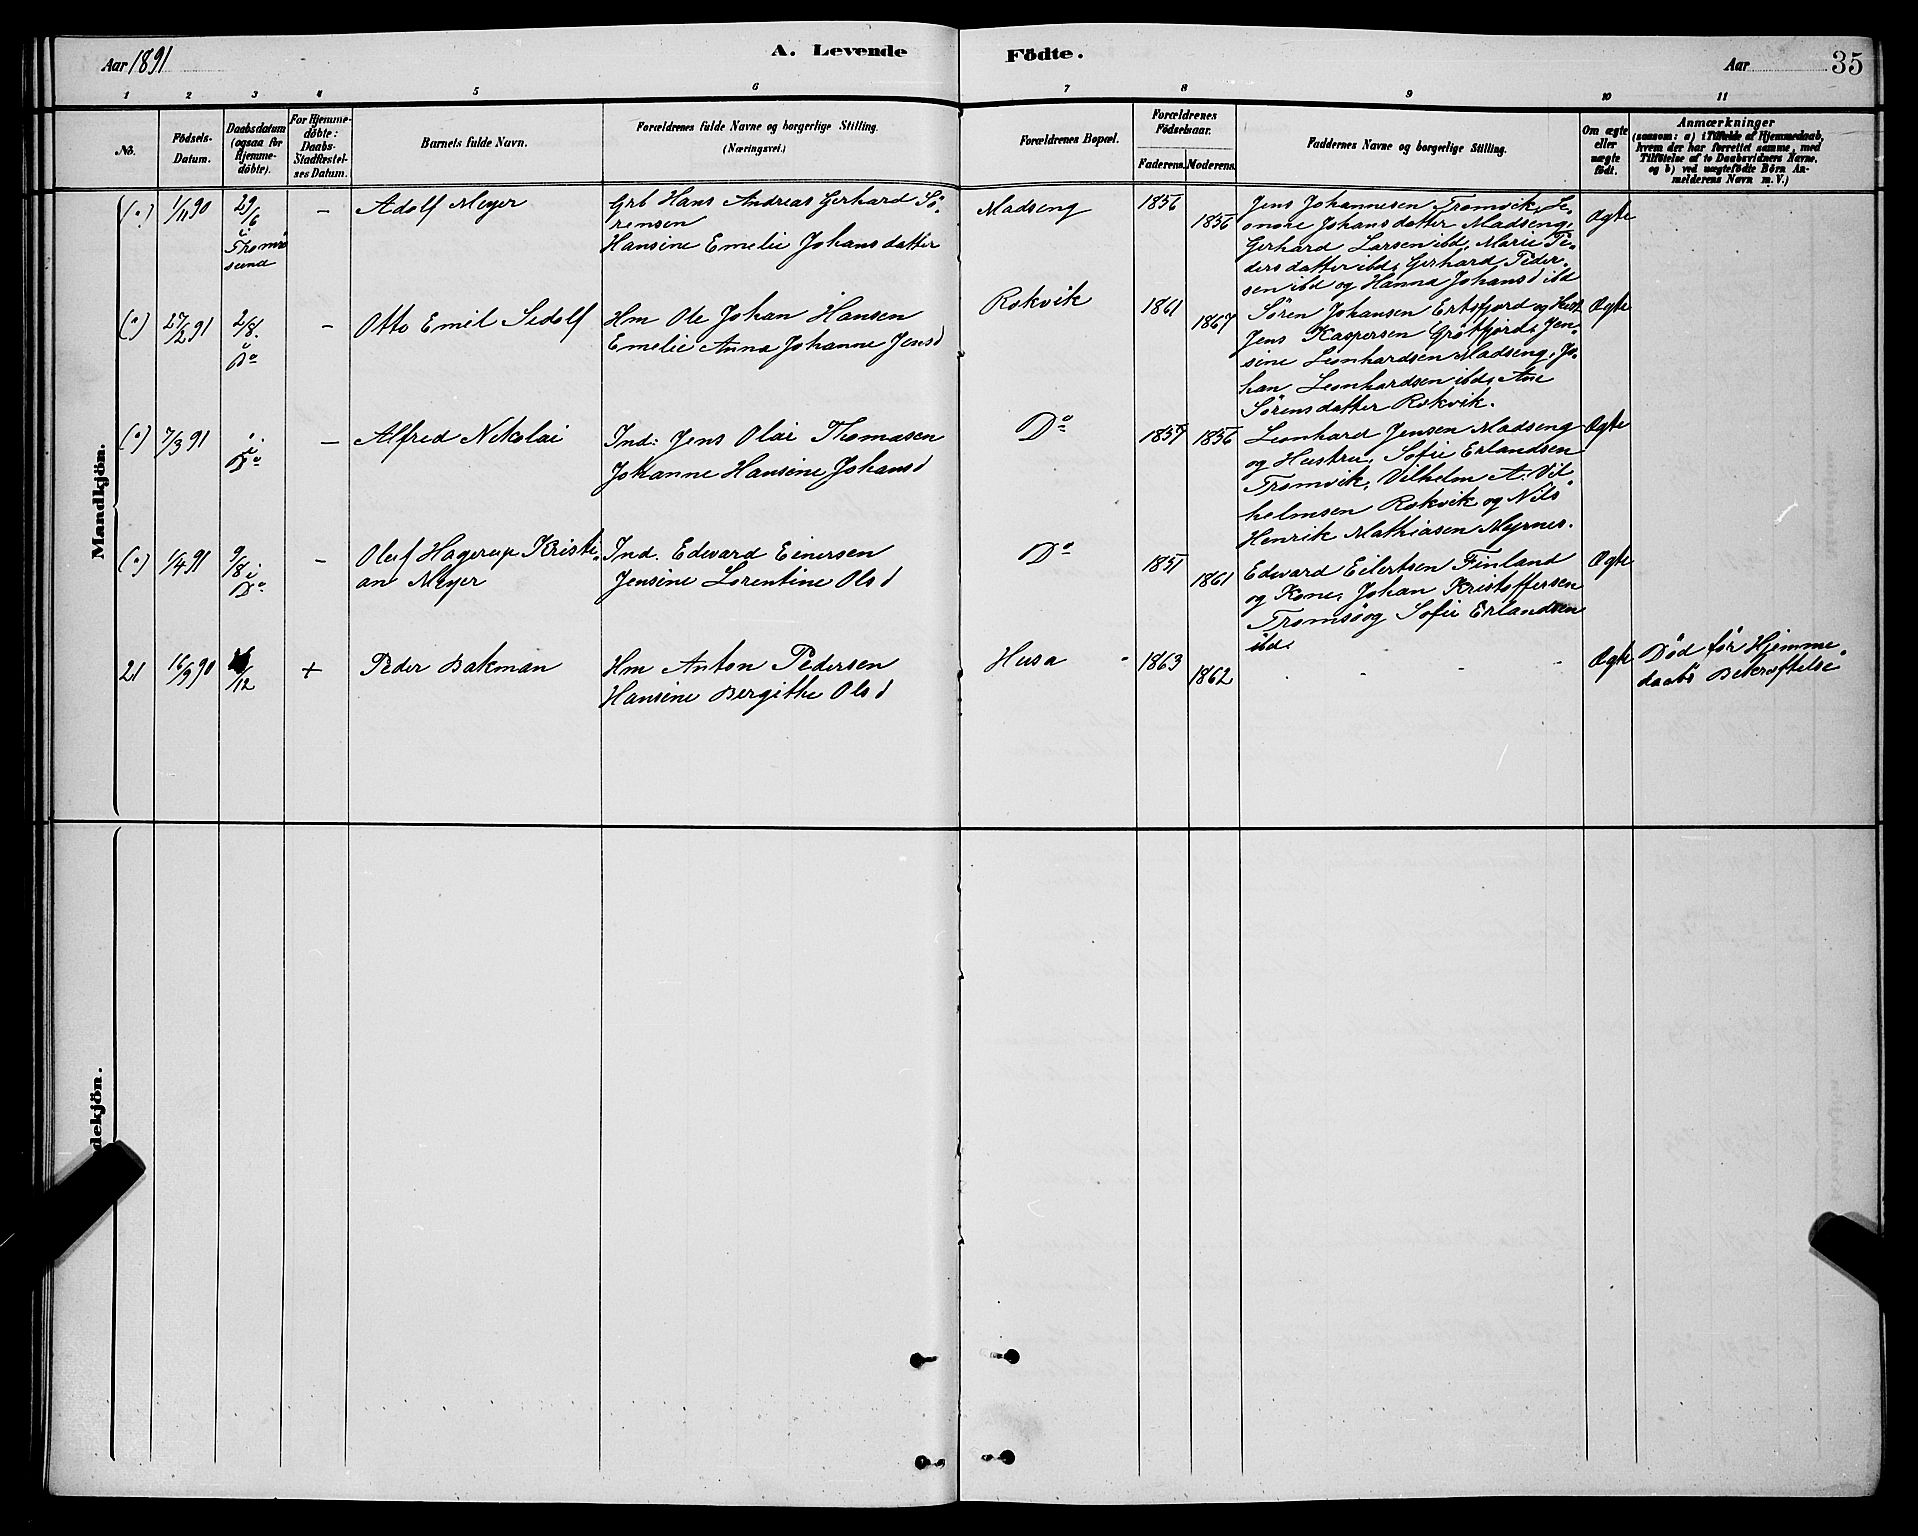 Aar 1891
A. Levende Födte.
Aar 35
1 2 3 4 5 6 7 8 9 10 11
No.
Födsels-Datum.
Daabsdatum (ogsaa for Hjemme-döbte).
For Hjemme-döbte: Daabs-Stadfæstel-ses Datum.
Barnets fulde Navn.
Forældrenes fulde Navne og borgerlige Stilling.
(Næringsvei.)
Forældrenes Bopæl.
Forældrenes Födselsaar.
Faderens. Moderens.
Faddernes Navne og borgerlige Stilling.
Om ægte eller uægte födt.
Anmærkninger
(saasom: a) i Tilfælde af Hjemmedaab,
hvem der har forrettet samme, med
Tilföielse af to Daabsvidners Navne,
og b) ved uægtefödte Börn An-
melderens Navn m. V.)
Mandkjön.
(") 1/11 90 29/6 i Tromsö sund - Adolf Meyer
Grb Hans Andreas Gerhard Sö-
rensen
Hansine Emelie Johansdatter
Madseng 1856 1856
Jens Johannesen Tromvik, Le-
onore Johansdatter Madseng,
Gerhard Larsen ibd, Marie Pe-
dersdatter ibd, Gerhard Peder-
sen ibd og Hanna Johansd ibd
Ægte
(") 27/2 91 2/8. i Do - Otto Emil Sedolf
Hm Ole Johan Hansen
Emelie Anna Johanne Jensd
Rekvik 1861 1867
Sören Johansen Ertsfjord og Hust
Jens Kaspersen Grötfjord, Jen-
sine Leonhardsen Madseng, Jo-
han Leonhardsen ibd, Ane
Sörensdatter Rekvik.
Ægte
(") 7/3 91 i Do - Alfred Nikolai
Ind: Jens Olai Thomasen
Johanne Hansine Johansd
Do 1857 1856
Leonhard Jensen Madseng
og Hustru, Sofie Erlandsen
Tromvik, Vilhelm A. Vil
helmsen Rekvik og Nils
Henrik Mathiasen Myrnes.
Ægte
(") 1/4 91 9/8 i Do - Oluf Hagerup Kristi-
an Meyer
Ind. Edvard Einersen
Jensine Lorentine Olsd
Do 1851 1861
Edvard Eilertsen Finland
og Kone, Johan Kristoffersen
Tromsö og Sofie Erlandsen
ibd.
Ægte
21 16/9 90 /12 + Peder Bakman
Hm Anton Pedersen
Hansine Bergithe Olsd
Husa 1863 1862
Ægte
Död för Hjemme-
daabs Bekræftelse
dekjön.